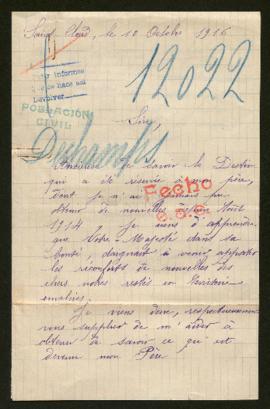 Saint Cloud, le 10 Octobre 1916
12022
informe
hace así
devolver
POBLACIÓN
CIVIL
Sire,
Deschamps
de savoir le Destin
qui a été réservé à mon père,
dont je n'ai jamais pu
obtenir de nouvelles depuis Août
Fecho
1914 Je viens d'apprendre
que Votre Majesté dans sa
bonté, daignait à venir apporter
les réconforts de nouvelles des
chers nôtres restés en Territoire
envahies.
Je viens donc, respectueusement
vous supplier de m'aider à
obtenir de savoir ce qui est
devenu mon Père